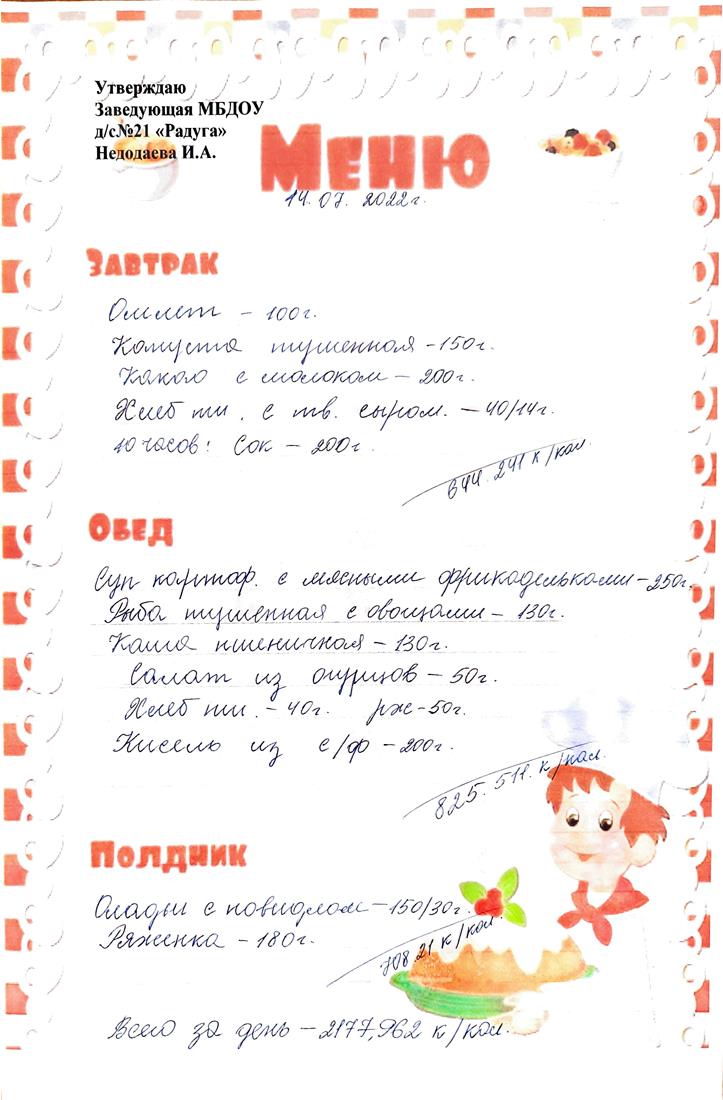 Утверждаю
Заведующая МБДОУ
д/с№21 «Радуга»
Недодаева И.А.
Меню
14.07.2022г.
Завтрак
Омлет - 100г.
Капуста тушенная - 150г.
Какао с молоком - 200г.
Хлеб пш. с тв. сыром. - 40/14г.
10 часов: Сок - 200г.
644.241 к/кал.
Обед
Суп картоф. с мясными фрикадельками - 250г.
Рыба тушенная с овощами - 130г.
Каша пшеничная - 130г.
Салат из огурцов - 50г.
Хлеб пш. - 40г. рж - 50г.
Кисель из с/ф - 200г.
825.511. к/кал.
Полдник
Оладьи с повидлом - 150/30г.
Ряженка - 180г.
708.21 к/кал.
Всего за день - 2177,962 к/кал.